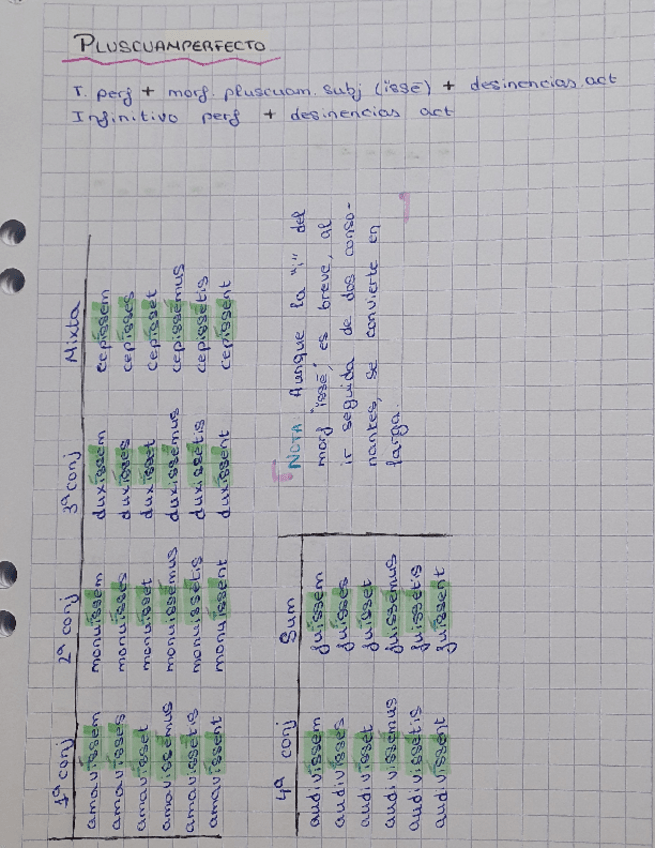 PLUSCUAMPERFECTO
T. perf + morf. pluscuam. subj (issē) + desinencias act
Infinitivo perf + desinencias act
1ª conj 2ª conj 3ª conj Mixta
amavissem monuissem duxissem cepissem
amavisses monuisses duxisses cepisses
amavisset monuisset duxisset cepisset
amavissemus monuissemus duxissemus cepissemus
amavissetis monuissetis duxissetis cepissetis
amavissent monuissent duxissent cepissent
4ª conj Sum
audivissem fuissem
audivisses fuisses
audivisset fuisset
audivissemus fuissemus
audivissetis fuissetis
audivissent fuissent
NOTA: Aunque la "i" del
morf "issē", es breve, al
ir seguida de dos conso-
nantes, se convierte en
larga.